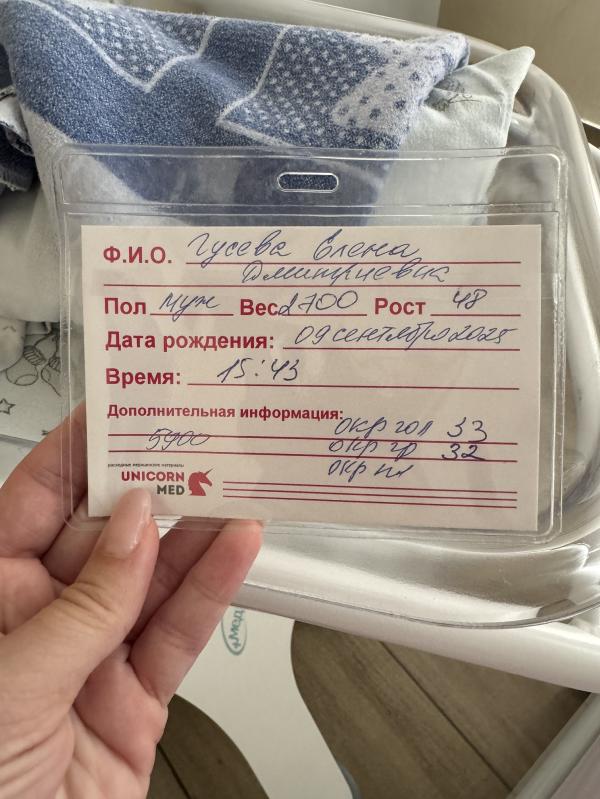 Ф.И.О. Гусева Елена
Дмитриевна
Пол муж Вес 2700 Рост 48
Дата рождения: 09 сентября 2025
Время: 15:43
Дополнительная информация:
окр гол 33
5900 окр гр 32
окр пл
расходные медицинские материалы
UNICORN
MED
+Мед